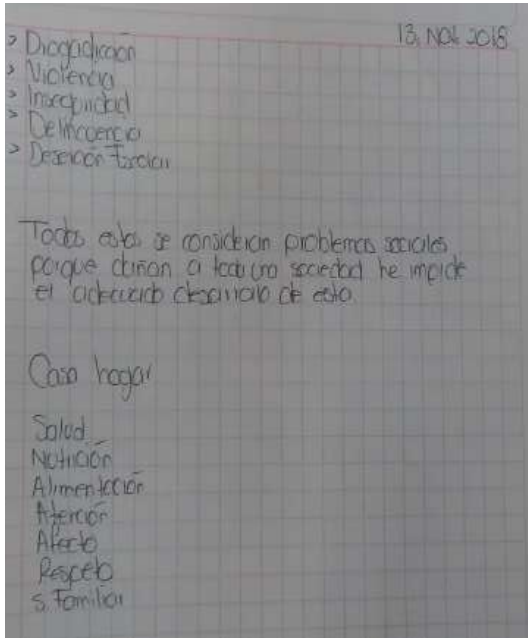 13, Nov 2018
> Drogadicción
> Violencia
> Inseguridad
> Delincuencia
> Deserción Escolar
Todos estos se consideran problemas sociales
porque dañan a toda una sociedad he impide
el adecuado desarrollo de esta.
Casa hogar
Salud
Nutrición
Alimentación
Atención
Afecto
Respeto
S. Familiar